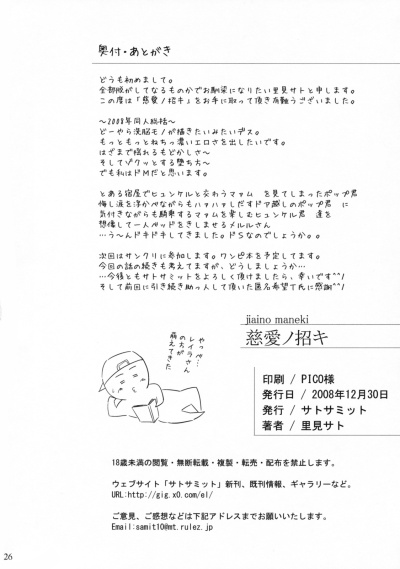 奥付・あとがき
どうも初めまして。
全部版がしてなるものかでお馴染になりたい里見サトと申します。
この度は「慈愛ノ招キ」をお手に取って頂き有難うございました。
～2008年同人総括～
どーやら洗脳モノが描きたいみたいデス。
もっともっとねちっ濃いエロさを出したいです。
はざまで揺れるもどかしさ～
そしてゾクッとする堕ち方～
でも私はドMだと思います。
とある宿屋でヒュンケルと交わうマァム を見てしまったポップ君
悔し涙を浮かべながらもハァハァしだすドア越しのポップ君 に
気付きながらも騎乗するマァムを楽しむヒュンケル君 達を
想像して一人ベッドをきしませるメルルさん
…う～んドキドキしてきました。ドSなのでしょうか。。
次回はサンクリに参加します。ワンピ本を予定してます。
今回の話の続きも考えてますが、どうしましょうか…
…今後ともサトサミットをよろしく頂けましたら、幸いです^^!
そして前回に引き続き助っ人して頂いた匿名希望T氏に感謝^^!
jiaino maneki
慈愛ノ招キ
やっべ…
レイラさん
のちが
萌えてきた
印刷 / PICO様
発行日 / 2008年12月30日
発行 / サトサミット
著者 / 里見サト
18歳未満の閲覧・無断転載・複製・転売・配布を禁止します。
ウェブサイト「サトサミット」新刊、既刊情報、ギャラリーなど。
URL:http://gig.x0.com/el/
ご意見、ご感想などは下記アドレスまでお願いいたします。
Email:samit10@mt.rulez.jp
26